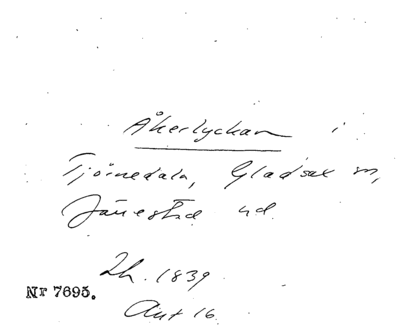 Åkerlyckan i
Tjörnedala, Gladsax sn,
Järrestad hd.
Lh. 1839
Nr 7695.
Akt 16